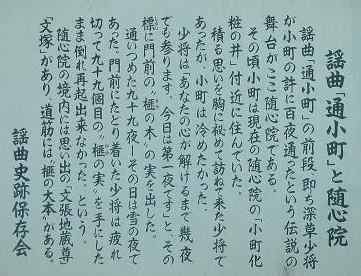 謡曲「通小町」と随心院
謡曲「通小町」の前段、即ち深草少将
が小町の許に百夜通ったという伝説の
舞台がここ随心院である。
その頃小町は現在の随心院の「小町化
粧の井」付近に住んでいた。
積る思いを胸に秘めて訪ねて来た少将で
あったが、小町は冷めたかった。
少将は「あなたの心が解けるまで幾夜
でも参ります。今日は第一夜です」と、その
標に門前の、"榧の木"の実を出した。
通いつめた九十九夜、その日は雪の夜で
あった。門前にたどり着いた少将は疲れ
切って九十九個目の"榧の実"を手にした
まま倒れ再起出来なかった、という。
随心院の境内には思い出の「文張地蔵尊」
「文塚」があり、道筋には「榧の大本」がある。
謡曲史跡保存会